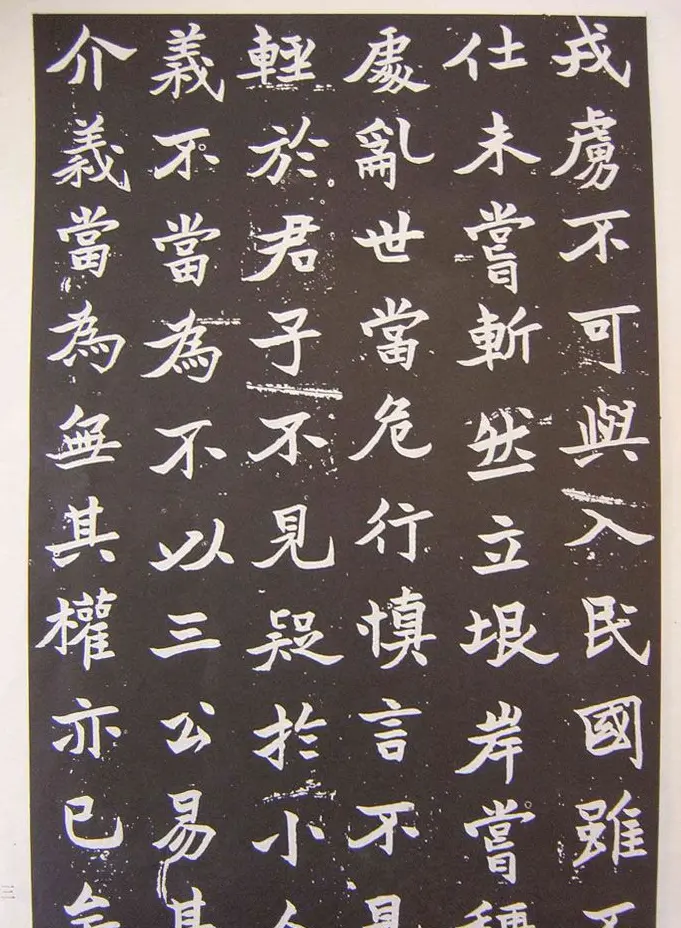 戎虜不可與入民國雖不
仕未嘗斬然立垠岸嘗稱
處亂世當危行慎言不見
輕於君子不見疑於小人
義不當為不以三公易其
介義當為無其權亦已矣
三